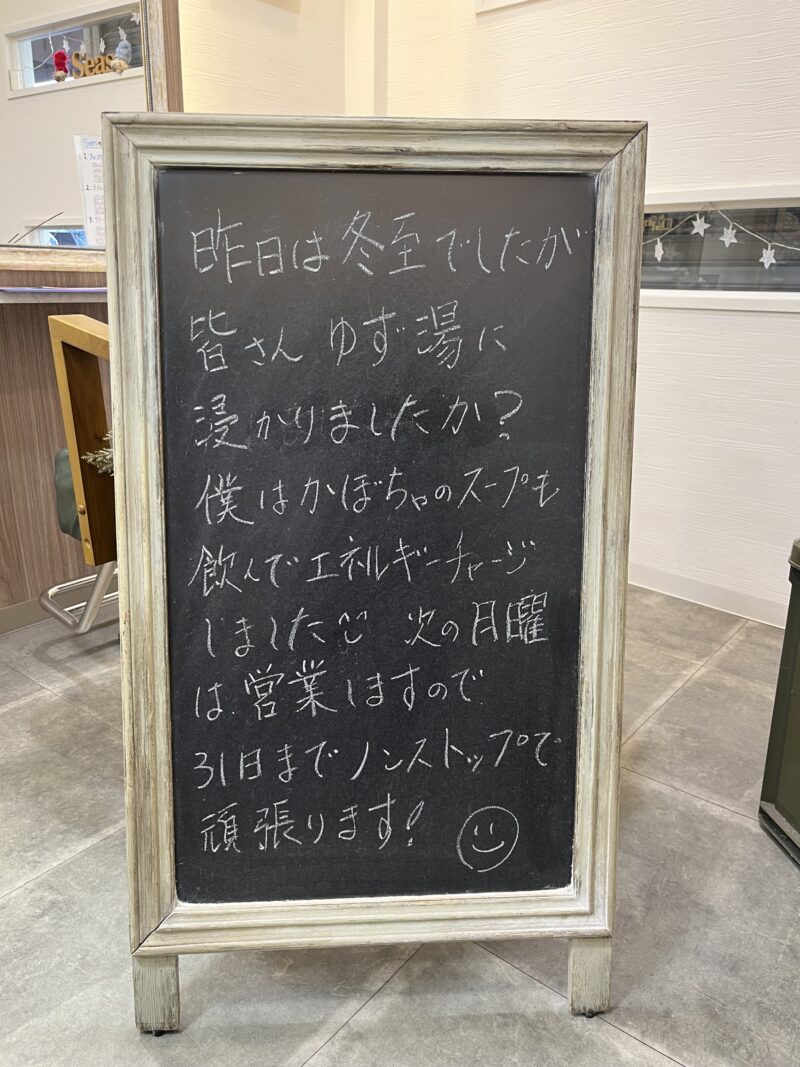 Seas
1.
2.
3.
昨日は冬至でしたが
皆さん ゆず湯に
浸かりましたか?
僕はかぼちゃのスープも
飲んでエネルギーチャージ
しました 次の月曜
は営業しますので
31日までノンストップで
頑張ります!